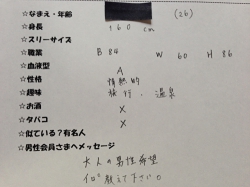 ☆なまえ・年齢 (26)
☆身長 160cm
☆スリーサイズ
☆職業 B 84 W 60 H 86
☆血液型 A
☆性格 情熱的
☆趣味 旅行、温泉
☆お酒 ×
☆タバコ ×
☆似ている?有名人
☆男性会員さまへメッセージ
大人の男性希望
教えて下さい。